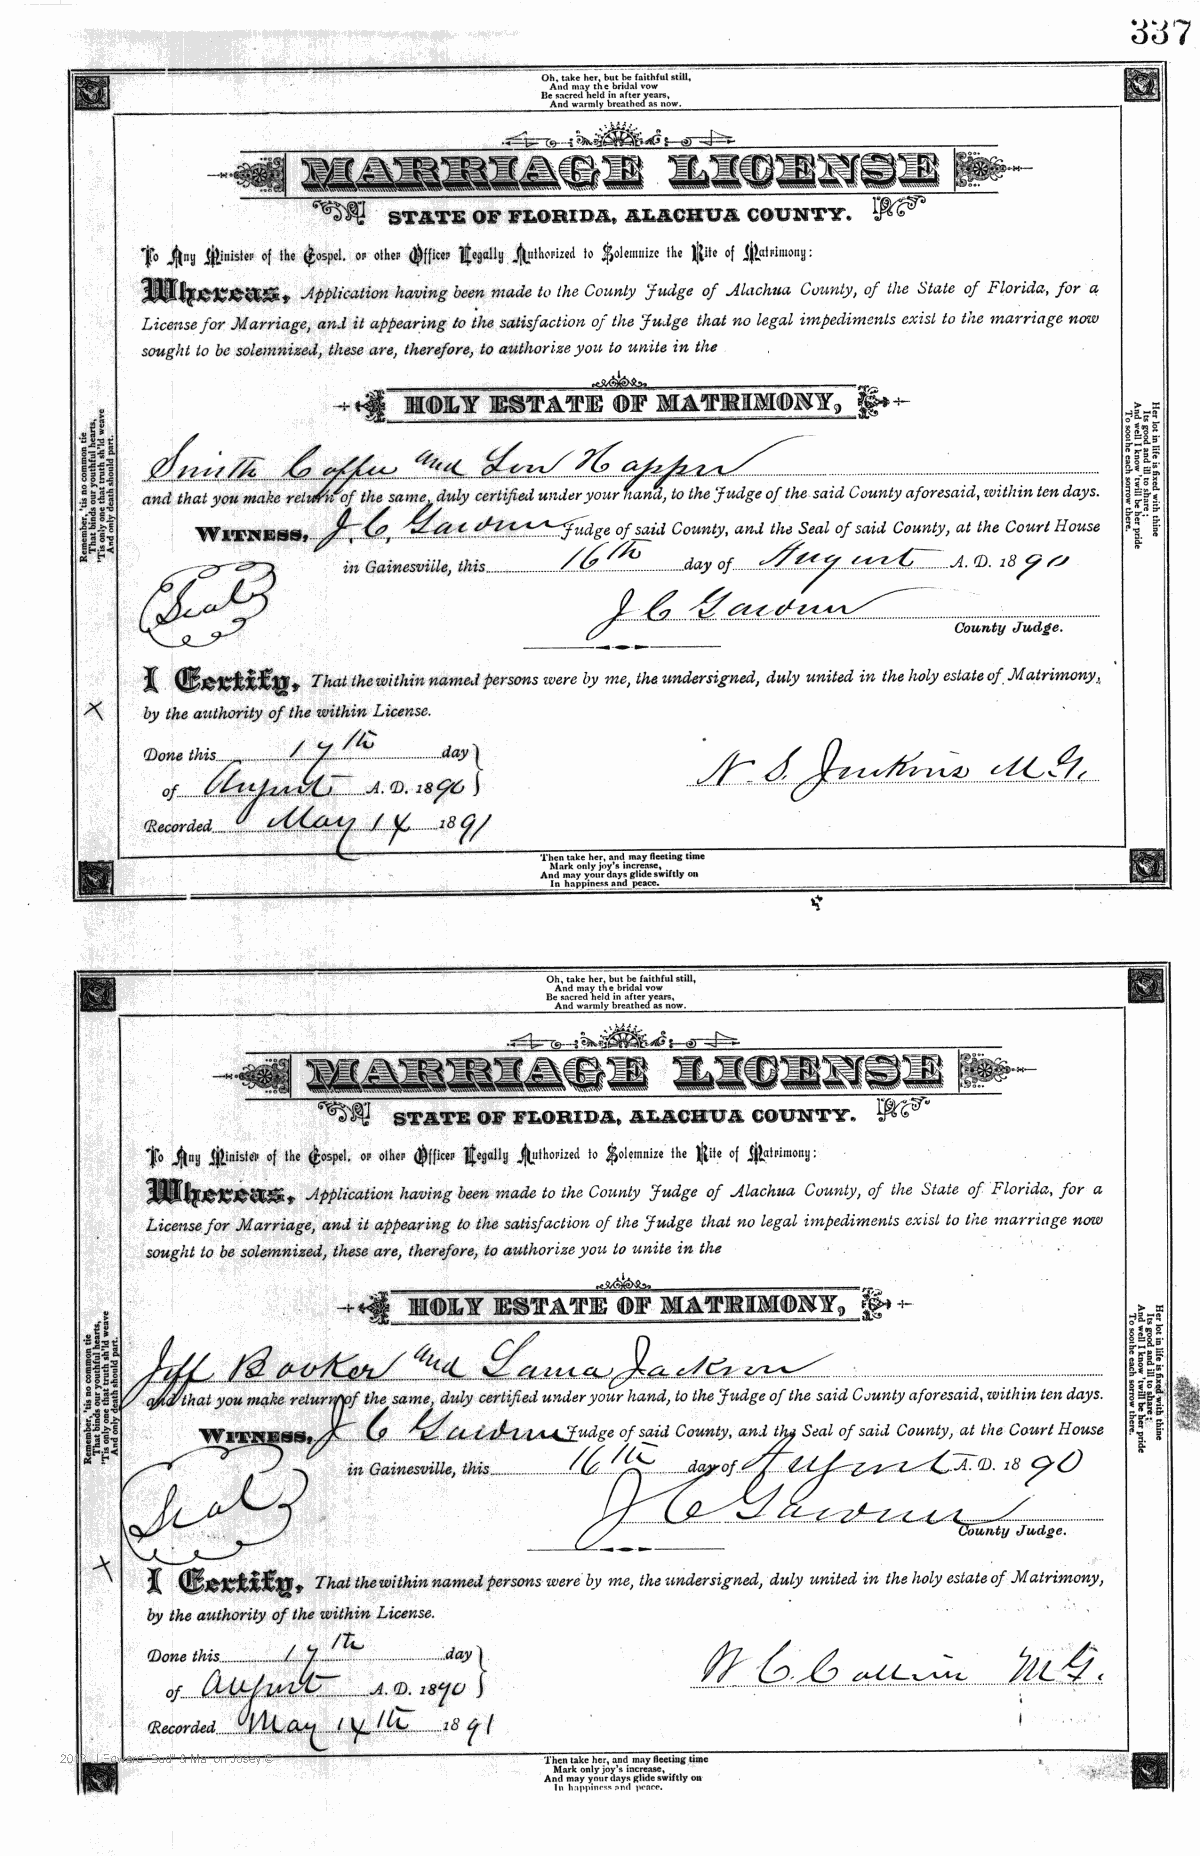 337
Oh, take her, but be faithful still,
And may the bridal vow
Be sacred held in after years,
And warmly breathed as now.
MARRIAGE LICENSE
STATE OF FLORIDA, ALACHUA COUNTY.
To Any Minister of the Gospel, or other Officer Legally Authorized to Solemnize the Rite of Matrimony:
Whereas, Application having been made to the County Judge of Alachua County, of the State of Florida, for a
License for Marriage, and it appearing to the satisfaction of the Judge that no legal impediments exist to the marriage now
sought to be solemnized, these are, therefore, to authorize you to unite in the
HOLY ESTATE OF MATRIMONY,
Smith Coffee and Lou Happer
and that you make return of the same, duly certified under your hand, to the Judge of the said County aforesaid, within ten days.
WITNESS, J. C. Gardner Judge of said County, and the Seal of said County, at the Court House
in Gainesville, this 16th day of August A. D. 1890
Seal
J C Gardner
County Judge.
I Certify, That the within named persons were by me, the undersigned, duly united in the holy estate of Matrimony,
by the authority of the within License.
X
Done this 17th day
of August A. D. 1890
N. S. Jenkins M.G.
Recorded May 14 1891
Then take her, and may fleeting time
Mark only joy's increase,
And may your days glide swiftly on
In happiness and peace.
Remember, 'tis no common tie
That binds our youthful hearts,
'Tis only one that truth sh'ld weave
And only death should part.
Her lot in life is fixed with thine
Its good and ill to share;
And well I know 'twill be her pride
To soothe each sorrow there.
Oh, take her, but be faithful still,
And may the bridal vow
Be sacred held in after years,
And warmly breathed as now.
MARRIAGE LICENSE
STATE OF FLORIDA, ALACHUA COUNTY.
To Any Minister of the Gospel, or other Officer Legally Authorized to Solemnize the Rite of Matrimony:
Whereas, Application having been made to the County Judge of Alachua County, of the State of Florida, for a
License for Marriage, and it appearing to the satisfaction of the Judge that no legal impediments exist to the marriage now
sought to be solemnized, these are, therefore, to authorize you to unite in the
HOLY ESTATE OF MATRIMONY,
Jeff Booker and Jackson
and that you make return of the same, duly certified under your hand, to the Judge of the said County aforesaid, within ten days.
WITNESS, J C Gardner Judge of said County, and the Seal of said County, at the Court House
in Gainesville, this 16th day of August A. D. 1890
Seal
J C Gardner
County Judge.
X
I Certify, That the within named persons were by me, the undersigned, duly united in the holy estate of Matrimony,
by the authority of the within License.
Done this 17th day
of August A. D. 1890
W. C. M.G.
Recorded May 14th 1891
Then take her, and may fleeting time
Mark only joy's increase,
And may your days glide swiftly on
In happiness and peace.
Remember, 'tis no common tie
That binds our youthful hearts,
'Tis only one that truth sh'ld weave
And only death should part.
Her lot in life is fixed with thine
Its good and ill to share;
And well I know 'twill be her pride
To soothe each sorrow there.